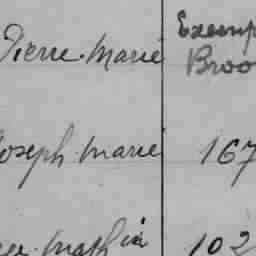 Pierre Marie Exemp
Broo
Joseph Marie 167
Mathia 102